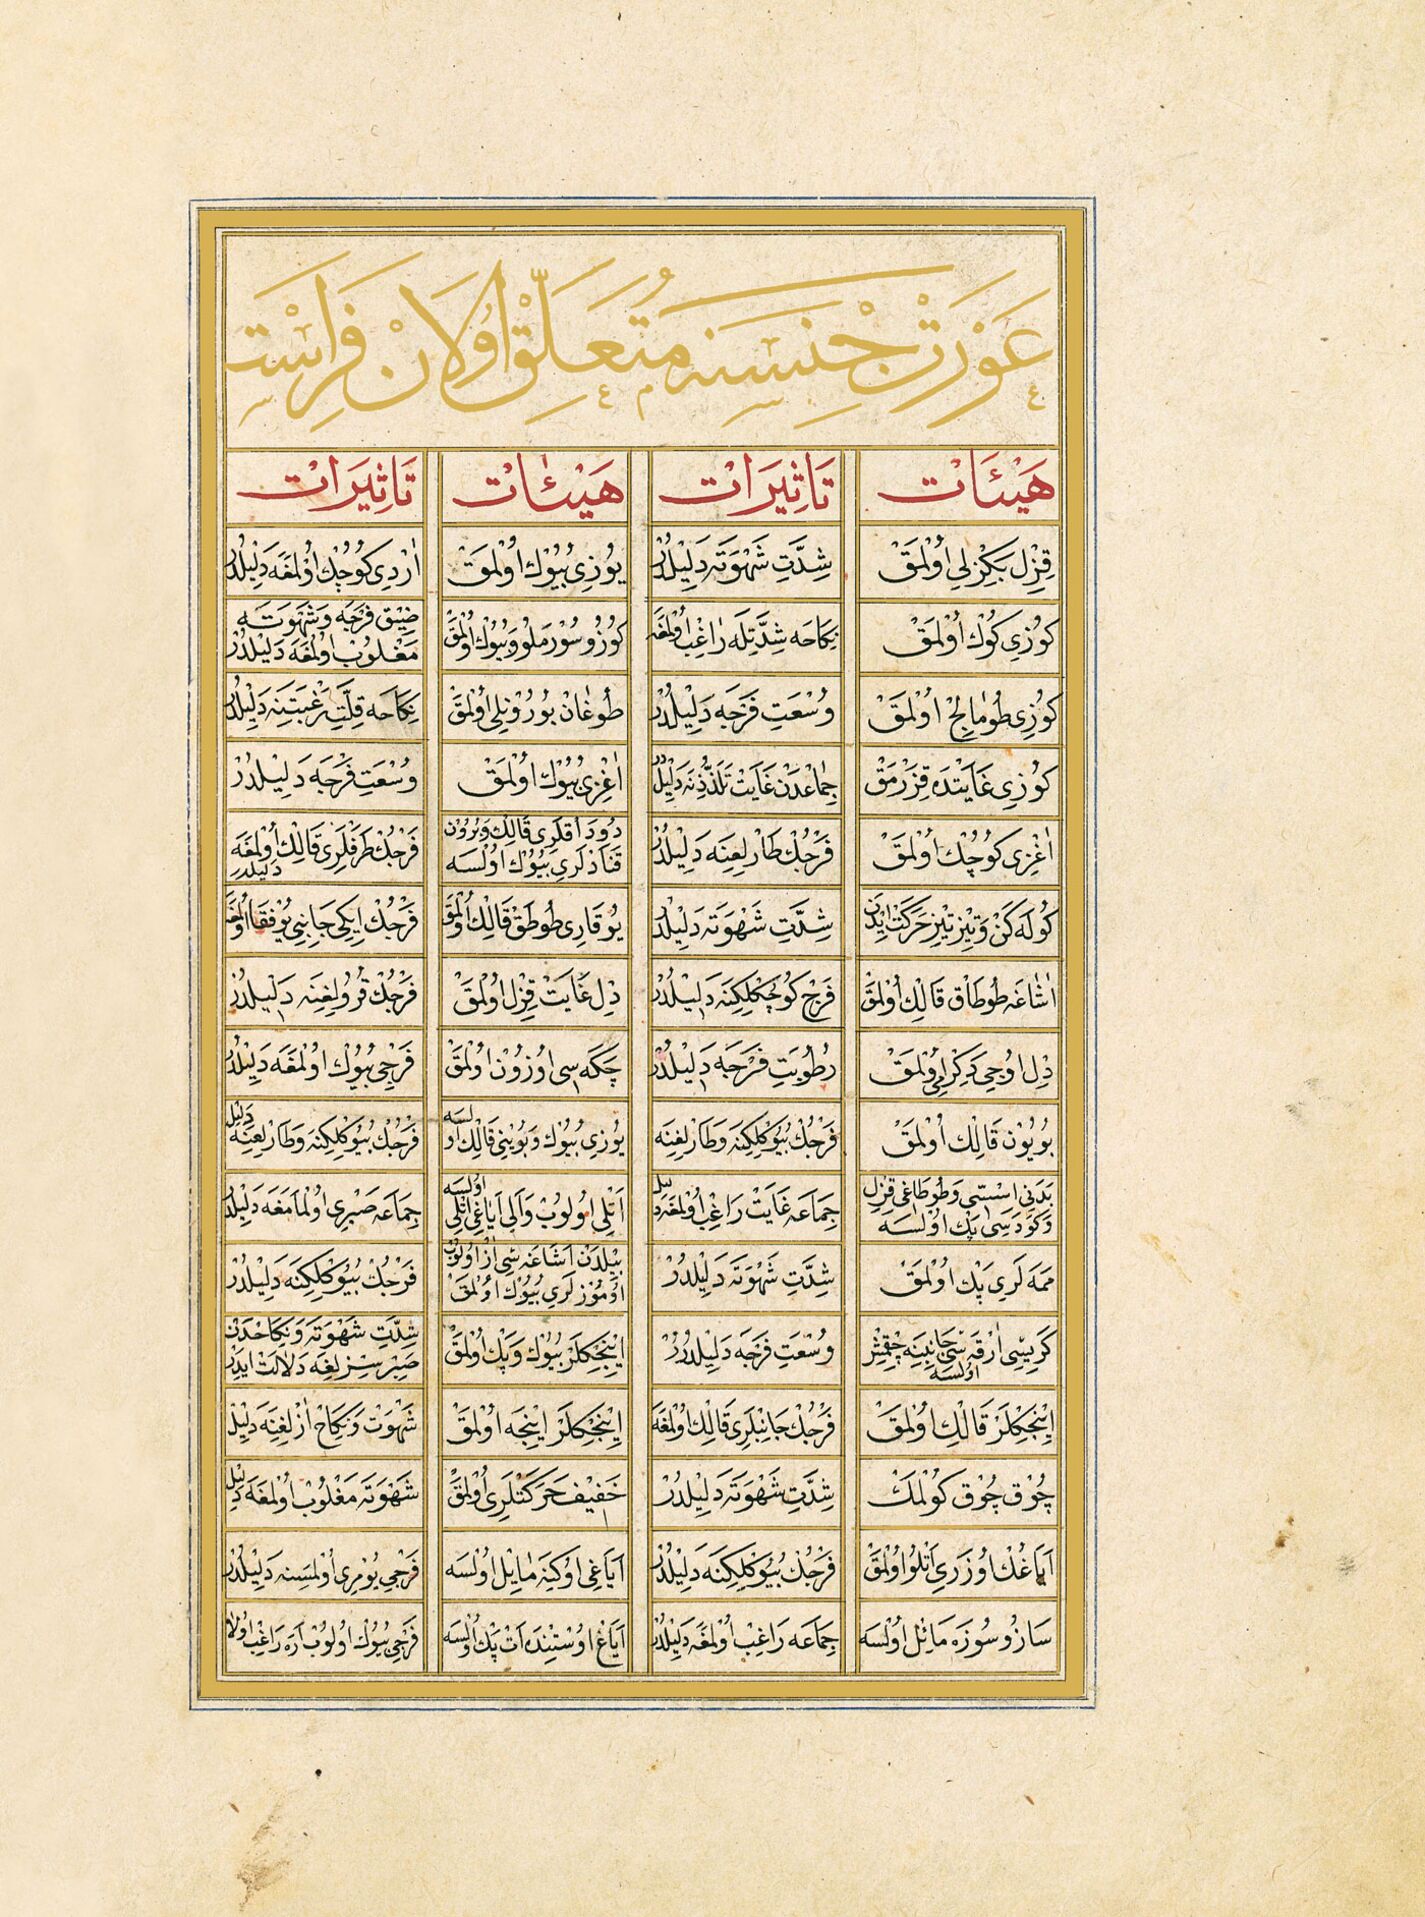 عَوْرَتْ جِنْسِنَه مُتَعَلِّقْ اُولَانْ فَرَاسَتْ
هَيْئَاتْ تَاثِيرَاتْ هَيْئَاتْ تَاثِيرَاتْ
قِزِلْ بَكِزْلِي اُولْمَقْ شِدَّتِ شَهْوَتَه دَلِيلْدُرْ يُوزِي بُيُوكْ اُولْمَقْ اَرْدِي كُوچُكْ اُولْمَغَه دَلِيلْدُرْ
كُوزِي كُوكْ اُولْمَقْ نِكَاحَه شِدَّتِلَه رَاغِبْ اُولْمَغَه كُوزُو سُورْمَلُو وَبُيُوكْ اُولْمَقْ ضِيقِ فَرْجَه وَشَهْوَتَه
مَغْلُوبْ اُولْمَغَه دَلِيلْدُرْ
كُوزِي طُومَالِجْ اُولْمَقْ وُسْعَتِ فَرْجَه دَلِيلْدُرْ طُوغَانْ بُورُونْلِي اُولْمَقْ نِكَاحَه قِلَّتِ رَغْبَتِنَه دَلِيلْدُرْ
كُوزِي غَايَتْدَه قِزَرْمَقْ جِمَاعْدَنْ غَايَتْ تَلَذُّذِنَه دَلِيلْدُرْ اَغْزِي بُيُوكْ اُولْمَقْ وُسْعَتِ فَرْجَه دَلِيلْدُرْ
اَغْزِي كُوچُكْ اُولْمَقْ فَرْجُكْ طَارْلِغِنَه دَلِيلْدُرْ دُودَاقْلَرِي قَالِكْ وَبُرُونْ
قَنَادْلَرِي بُيُوكْ اُولْسَه فَرْجُكْ طَرَفْلَرِي قَالِكْ اُولْمَغَه
دَلِيلْدُرْ
كُولَه كَنْ وَتِيزْ تِيزْ حَرَكَتْ ايدَنْ شِدَّتِ شَهْوَتَه دَلِيلْدُرْ يُوقَارِي طُوطَقْ قَالِكْ اُولْمَقْ فَرْجُكْ اِيكِي جَانِبِي يُوفْقَا اُولْمَغَه
اَشَاغَه طُوطَاقْ قَالِكْ اُولْمَقْ فَرْجْ كُوچُكْلِكِنَه دَلِيلْدُرْ دِلْ غَايَتْ قِزِلْ اُولْمَقْ فَرْجُكْ قُرُولِغِنَه دَلِيلْدُرْ
دِلْ اُوجِي دَكِرْمِي اُولْمَقْ رُطُوبَتِ فَرْجَه دَلِيلْدُرْ چَكَه سِي اُوزُونْ اُولْمَقْ فَرْجِي بُيُوكْ اُولْمَغَه دَلِيلْدُرْ
بُويُونْ قَالِكْ اُولْمَقْ فَرْجُكْ بُيُوكْلِكِنَه وَطَارْلِغِنَه يُوزِي بُيُوكْ وَبُوينِي قَالِكْ اُولْسَه فَرْجُكْ بُيُوكْلِكِنَه وَطَارْلِغِنَه دَلِيلْ
بَدَنِي اِسْتِي وَطُوطَاغِي قِزِلْ
وَكَوْدَسِي پَكْ اُولْسَه جِمَاعَه غَايَتْ رَاغِبْ اُولْمَغَه دَلِيلْ اَتْلِي اُولُوبْ وَاَلِي اَيَاغِي اَتْلِي اُولْسَه جِمَاعَه صَبْرِي اُولْمَامَغَه دَلِيلْدُرْ
مَمَه لَرِي پَكْ اُولْمَقْ شِدَّتِ شَهْوَتَه دَلِيلْدُرْ بِيلْدَنْ اَشَاغَه سِي اَزْ اُولُوبْ
اُومُوزْلَرِي بُيُوكْ اُولْمَقْ فَرْجُكْ بُيُوكْلِكِنَه دَلِيلْدُرْ
كَرِيسِي اَرْقَه سِي جَانِبِنَه چِقْمِشْ
اُولْسَه وُسْعَتِ فَرْجَه دَلِيلْدُرْ اِينْجِكْلَرْ بُيُوكْ وَپَكْ اُولْمَقْ شِدَّتِ شَهْوَتَه وَنِكَاحْدَنْ
صَبِرْسِزْلِغَه دَلَالَتْ ايدَرْ
اِينْجِكْلَرْ قَالِكْ اُولْمَقْ فَرْجُكْ جَانِبْلَرِي قَالِكْ اُولْمَغَه اِينْجِكْلَرْ اِينْجَه اُولْمَقْ شَهْوَتْ وَنِكَاحْ اَزْلِغِنَه دَلِيلْ
چُوقْ چُوقْ كُولْمَكْ شِدَّتِ شَهْوَتَه دَلِيلْدُرْ خَفِيفْ حَرَكَتْلَرِي اُولْمَقْ شَهْوَتَه مَغْلُوبْ اُولْمَغَه دَلِيلْ
اَيَاغُكْ اُوزَرِي اَتْلُو اُولْمَقْ فَرْجُكْ بُيُوكْلِكِنَه دَلِيلْدُرْ اَيَاغِي اُوكِنَه مَائِلْ اُولْسَه فَرْجِي يُومْرِي اُولْمَسِنَه دَلِيلْدُرْ
سَازُو سُوزَه مَائِلْ اُولْسَه جِمَاعَه رَاغِبْ اُولْمَغَه دَلِيلْدُرْ اَيَاغْ اُوسْتِنْدَه اَتْ پَكْ اُولْسَه فَرْجِي بُيُوكْ اُولُوبْ اَرَه رَاغِبْ اُولَا